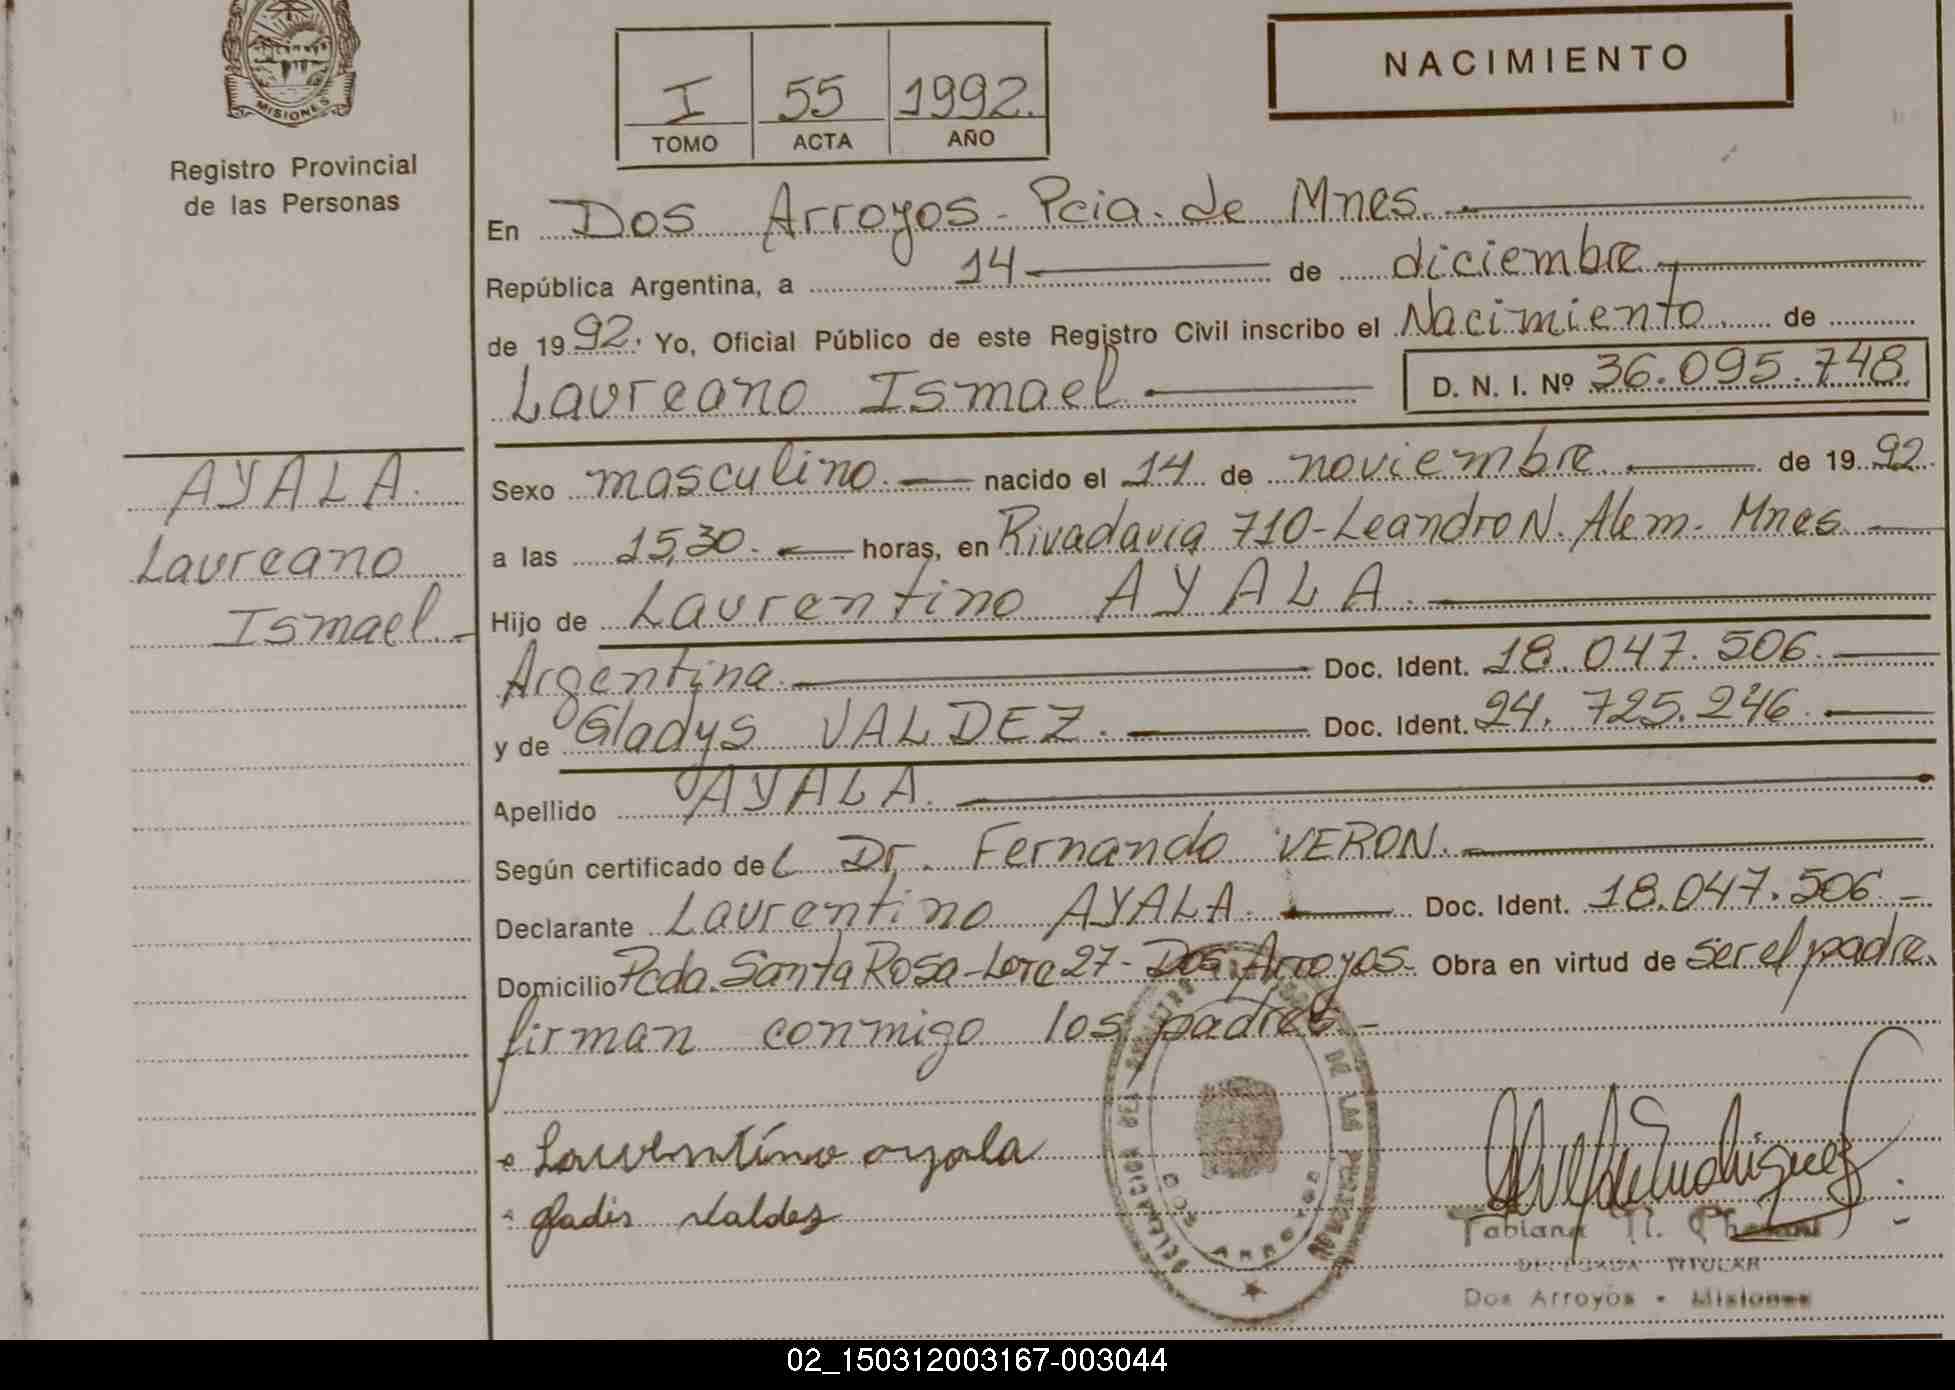 MISIONES
Registro Provincial
de las Personas
I 55 1992.
TOMO ACTA AÑO
NACIMIENTO
En Dos Arroyos - Pcia. de Mnes.
República Argentina, a 14 de diciembre
de 1992. Yo, Oficial Público de este Registro Civil inscribo el Nacimiento de
Laureano Ismael D. N. I. Nº 36.095.748
AYALA.
Laureano
Ismael
Sexo masculino. nacido el 14 de noviembre de 1992
a las 15,30. horas, en Rivadavia 710-Leandro N. Alem. Mnes
Hijo de Laurentino AYALA.
Argentina. Doc. Ident. 18.047.506.
y de Gladys VALDEZ. Doc. Ident. 24.725.246
Apellido AYALA.
Según certificado del Dr. Fernando VERON.
Declarante Laurentino AYALA. Doc. Ident. 18.047.506
Domicilio Pcda. Santa Rosa - Lote 27 - Dos Arroyos - Obra en virtud de ser el padre.
firman conmigo los padres. -
Laurentino ayala
gladis Valdez
DOS ARROYOS
DE LAS PERSONAS
Fabiana
DELEGADA TITULAR
Dos Arroyos - Misiones
02_150312003167-003044